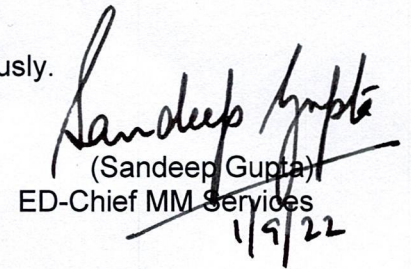 usly.
Sandeep Gupta
(Sandeep Gupta)
ED-Chief MM Services
1/9/22